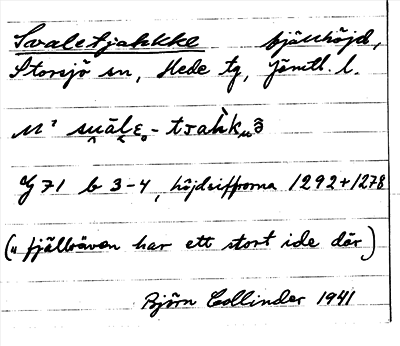 Svaletjahkke fjällhöjd,
Storsjö sn, Hede tg, Jämtl. l.
M¹ su̯ālɛ-tsah̀k
G 71 b 3-4, höjdsiffrorna 1292+1278
(" fjällräven har ett stort ide där)
Björn Collinder 1941